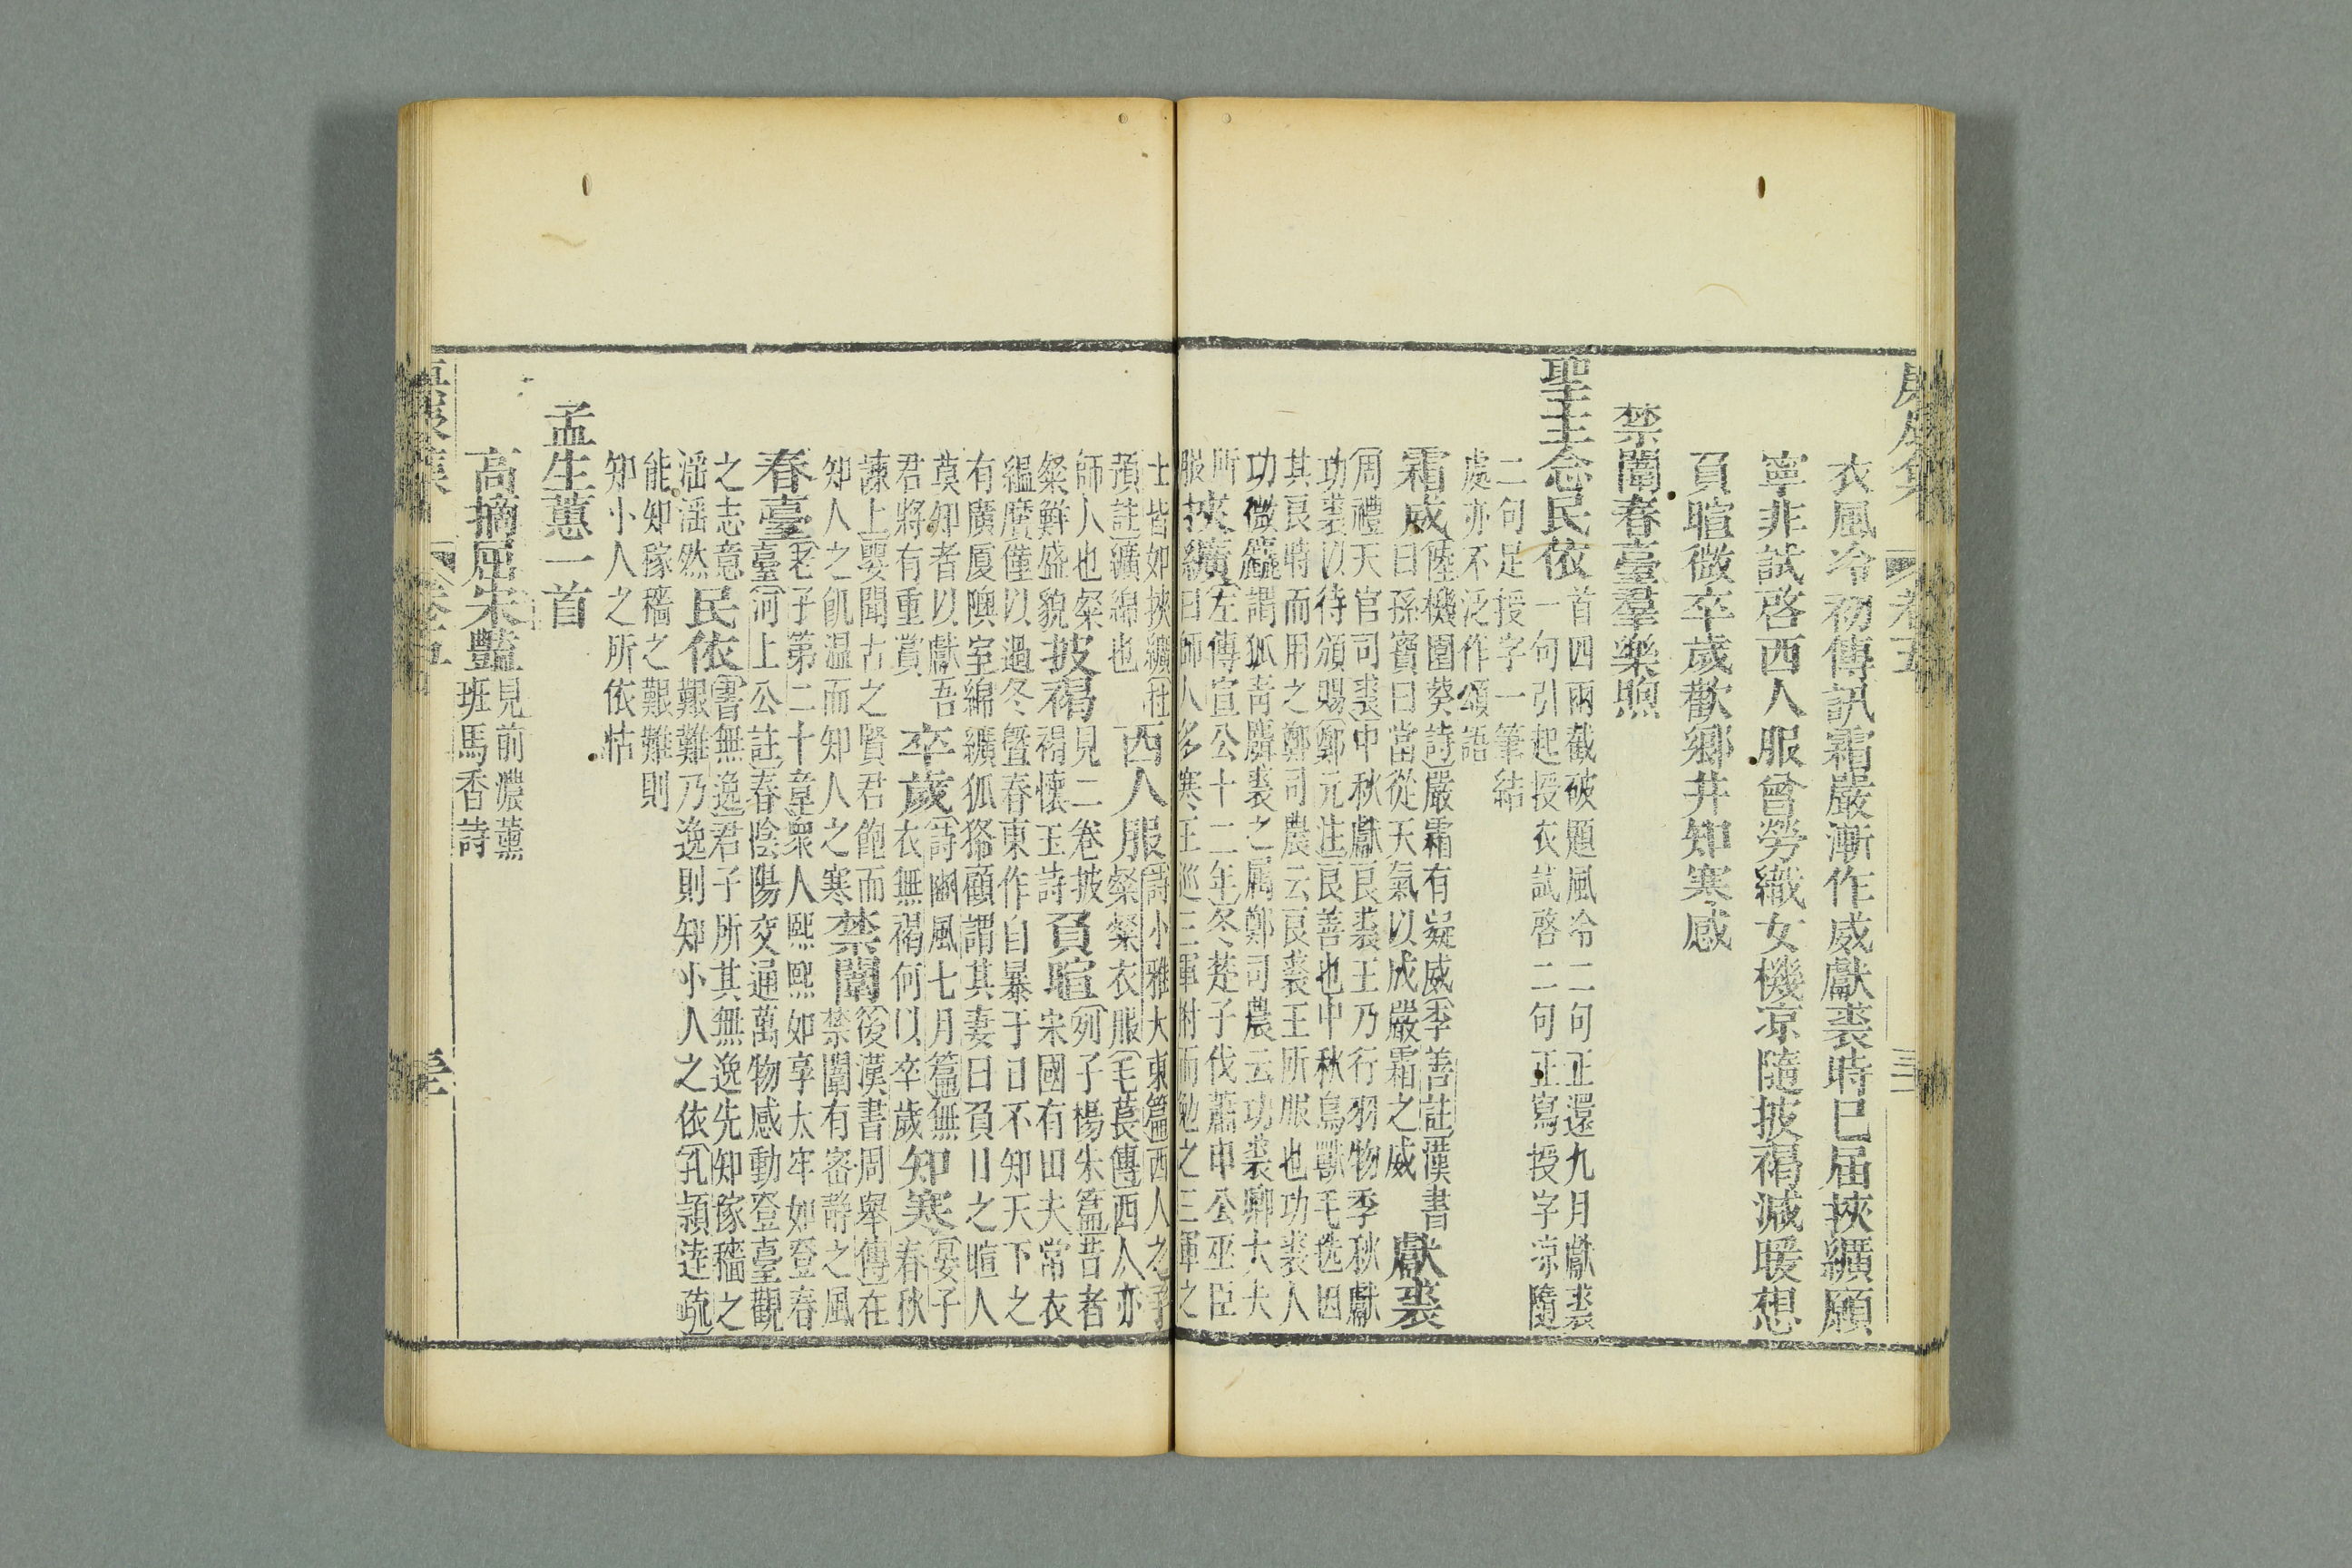 衣風冷初傳訊霜嚴漸作威獻裘時已屆挾纊願
寧非試啓西人服曾勞織女機凉隨披褐減暖想
負暄微卒歲歡鄉井知寒感
禁闈春臺羣樂煦
聖主念民依首四兩截破題風冷二句正還九月獻裘
一句引起授衣試啓二句正寫授字凉隨
二句足授字一筆結
處亦不泛作頌語
霜威陸機園葵詩嚴霜有凝威李善註漢書
曰孫寶曰當從天氣以成嚴霜之威獻裘
周禮天官司裘中秋獻良裘王乃行羽物季秋獻
功裘以待頒賜鄭元注良善也中秋鳥獸毛毨因
其良時而用之鄭司農云良裘王所服也功裘人
功微麤謂狐青麛裘之屬鄭司農云功裘卿大夫
所挾纊左傳宣公十二年冬楚子伐蕭申公巫臣
服曰師人多寒王巡三軍拊而勉之三軍之
士皆如挾纊杜西人服詩小雅大東篇西人之子
預註纊綿也粲粲衣服毛萇傳西人亦
師人也粲披褐見二卷披負暄列子楊朱篇昔者
粲鮮盛貌褐懷玉詩宋國有田夫常衣
縕黂僅以過冬曁春東作自暴于日不知天下之
有廣廈隩室綿纊狐狢顧謂其妻曰負日之暄人
莫知者以獻吾卒歲詩豳風七月篇無知寒晏子
君將有重賞衣無褐何以卒歲春秋
諫上嬰聞古之賢君飽而禁闈後漢書周舉傳在
知人之飢温而知人之寒禁闈有密靜之風
春臺老子第二十章衆人熙熙如享太牢如登春
臺河上公註春陰陽交通萬物感動登臺觀
之志意民依書無逸君子所其無逸先知稼穡之
滛滛然艱難乃逸則知小人之依孔穎達疏
能知稼穡之艱難則
知小人之所依怙
孟生蕙一首
高摘屈宋豔見前濃薰
班馬香詩
卷五